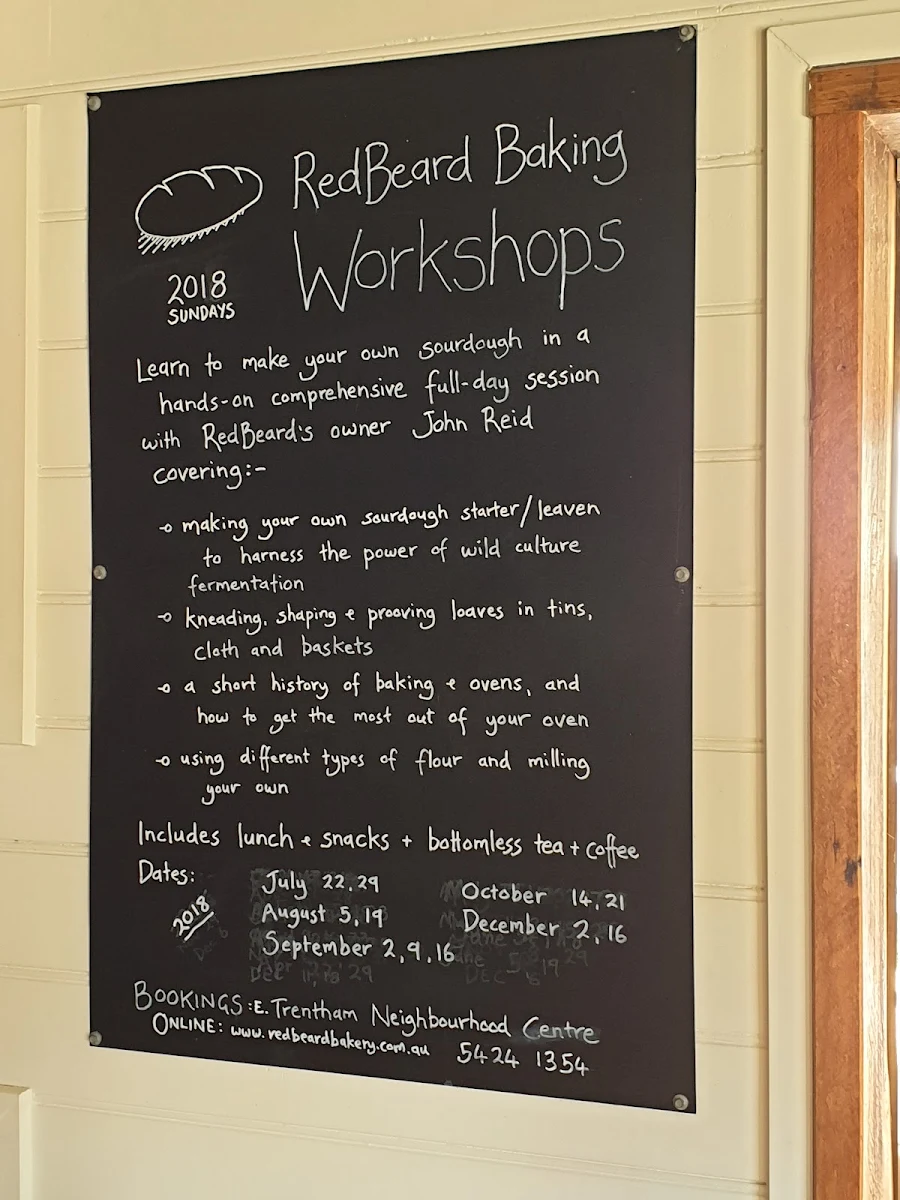 RedBeard Baking
Workshops
2018
SUNDAYS
Learn to make your own sourdough in a
hands-on comprehensive full-day session
with RedBeard's owner John Reid
covering:-
making your own sourdough starter/leaven
to harness the power of wild culture
fermentation
kneading, shaping & prooving loaves in tins,
cloth and baskets
a short history of baking & ovens, and
how to get the most out of your oven
using different types of flour and milling
your own
Includes lunch & snacks + bottomless tea + coffee
Dates:
2018
July 22,29
August 5,19
September 2,9,16
October 14,21
December 2,16
BOOKINGS: E. Trentham Neighbourhood Centre
5424 1354
ONLINE: www.redbeardbakery.com.au